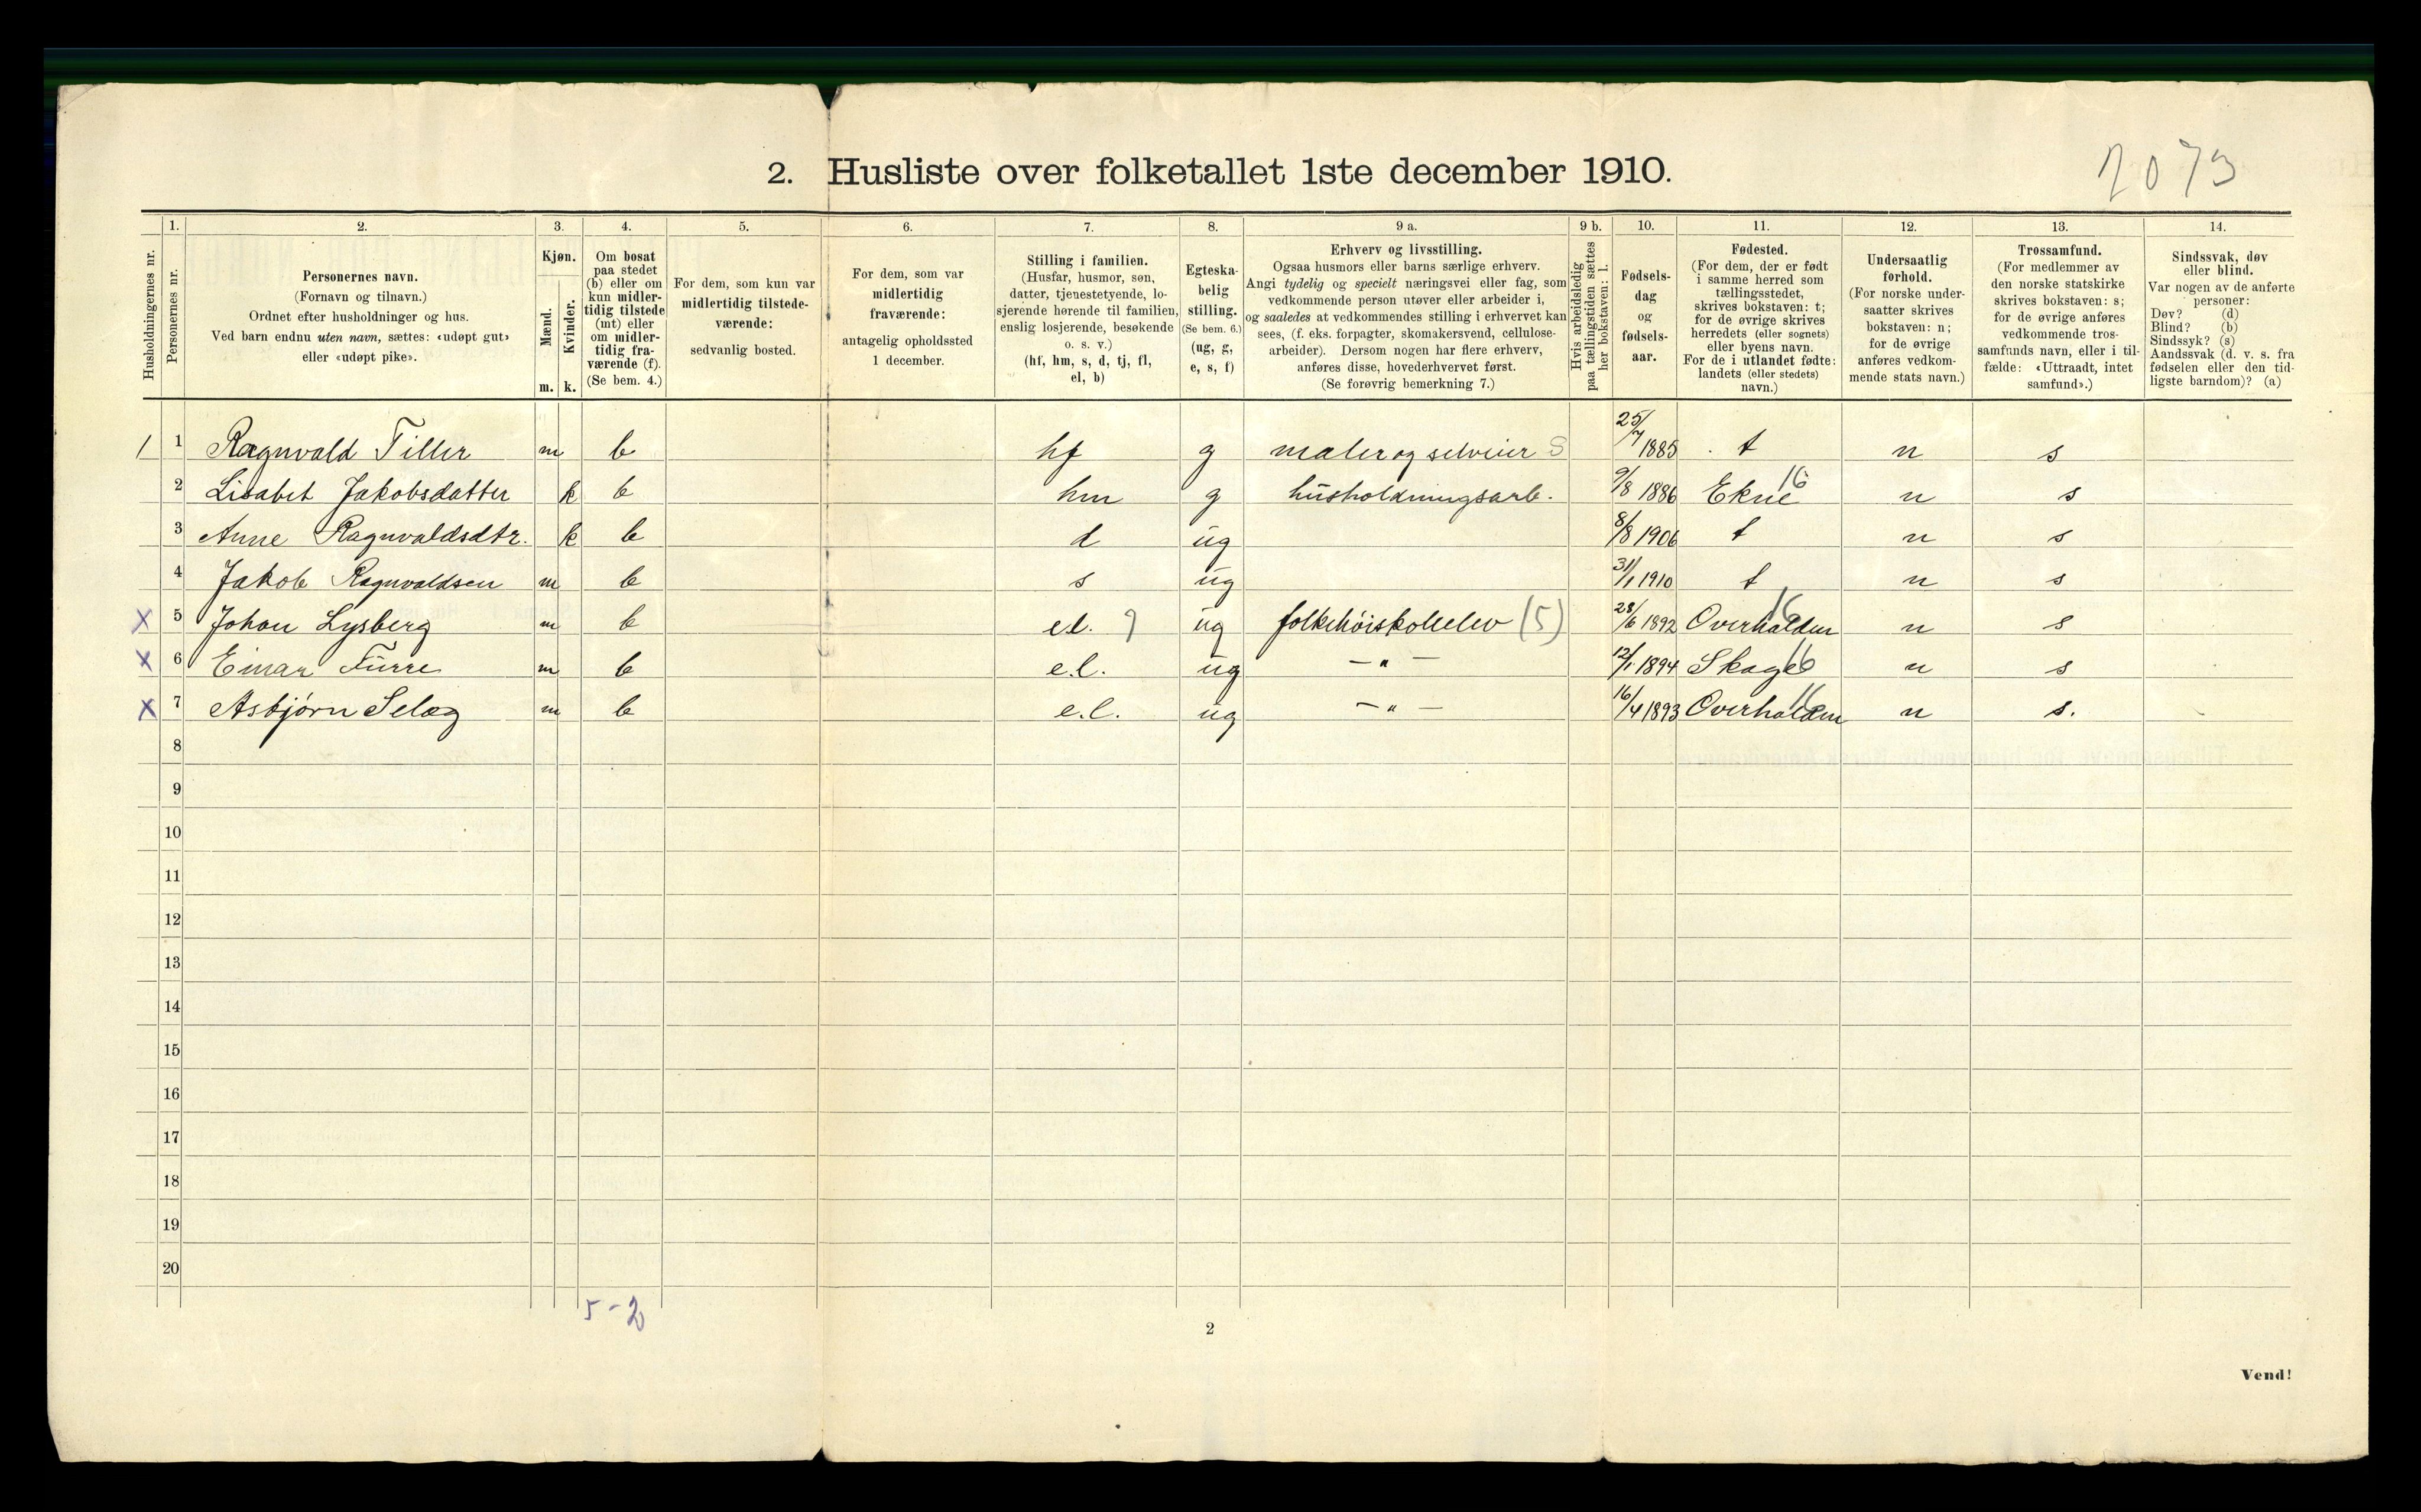 2073
2. Husliste over folketallet 1ste december 1910.
Husholdningernes nr.
1. Personernes nr.
2. Personernes navn.
(Fornavn og tilnavn.)
Ordnet efter husholdninger og hus.
Ved barn endnu uten navn, sættes: «udøpt gut»
eller «udøpt pike».
3. Kjøn.
Mænd. m.
Kvinder. k.
4. Om bosat
paa stedet
(b) eller om
kun midler-
tidig tilstede
(mt) eller
om midler-
tidig fra-
værende (f).
(Se bem. 4.)
5. For dem, som kun var
midlertidig tilstede-
værende:
sedvanlig bosted.
6. For dem, som var
midlertidig
fraværende:
antagelig opholdssted
1 december.
7. Stilling i familien.
(Husfar, husmor, søn,
datter, tjenestetyende, lo-
sjerende hørende til familien,
enslig losjerende, besøkende
o. s. v.)
(hf, hm, s, d, tj, fl,
el, b)
8. Egteska-
belig
stilling.
(Se bem. 6.)
(ug, g,
e, s, f)
9 a. Erhverv og livsstilling.
Ogsaa husmors eller barns særlige erhverv.
Angi tydelig og specielt næringsvei eller fag, som
vedkommende person utøver eller arbeider i,
og saaledes at vedkommendes stilling i erhvervet kan
sees, (f. eks. forpagter, skomakersvend, cellulose-
arbeider). Dersom nogen har flere erhverv,
anføres disse, hovederhvervet først.
(Se forøvrig bemerkning 7.)
9 b. Hvis arbeidsledig
paa tællingstiden sættes
her bokstaven: l.
10. Fødsels-
dag
og
fødsels-
aar.
11. Fødested.
(For dem, der er født
i samme herred som
tællingsstedet,
skrives bokstaven: t;
for de øvrige skrives
herredets (eller sognets)
eller byens navn.
For de i utlandet fødte:
landets (eller stedets)
navn.)
12. Undersaatlig
forhold.
(For norske under-
saatter skrives
bokstaven: n;
for de øvrige
anføres vedkom-
mende stats navn.)
13. Trossamfund.
(For medlemmer av
den norske statskirke
skrives bokstaven: s;
for de øvrige anføres
vedkommende tros-
samfunds navn, eller i til-
fælde: «Uttraadt, intet
samfund».)
14. Sindssvak, døv
eller blind.
Var nogen av de anførte
personer:
Døv? (d)
Blind? (b)
Sindssyk? (s)
Aandssvak (d. v. s. fra
fødselen eller den tid-
ligste barndom)? (a)
1 1 Ragnvald Tiller m b hf g maler og selveier S 25/7 1885 t n s
2 Lisabet Jakobsdatter k b hm g husholdningsarb. 9/8 1886 Ekne 16 n s
3 Anne Ragnvaldsdtr. k b d ug 8/8 1906 t n s
4 Jakob Ragnvaldsen m b s ug 31/1 1910 t n s
X 5 Johan Lysberg m b el. ug folkehøiskoleelev (5) 28/6 1892 Overhalden 16 n s
X 6 Einar Furre m b e.l. ug — " — 12/1 1894 Skage 16 n s
X 7 Asbjørn Selæg m b e.l. ug — " — 16/4 1893 Overhalden 16 n s.
8
9
10
11
12
13
14
15
16
17
18
19
20
5-2
2
Vend!